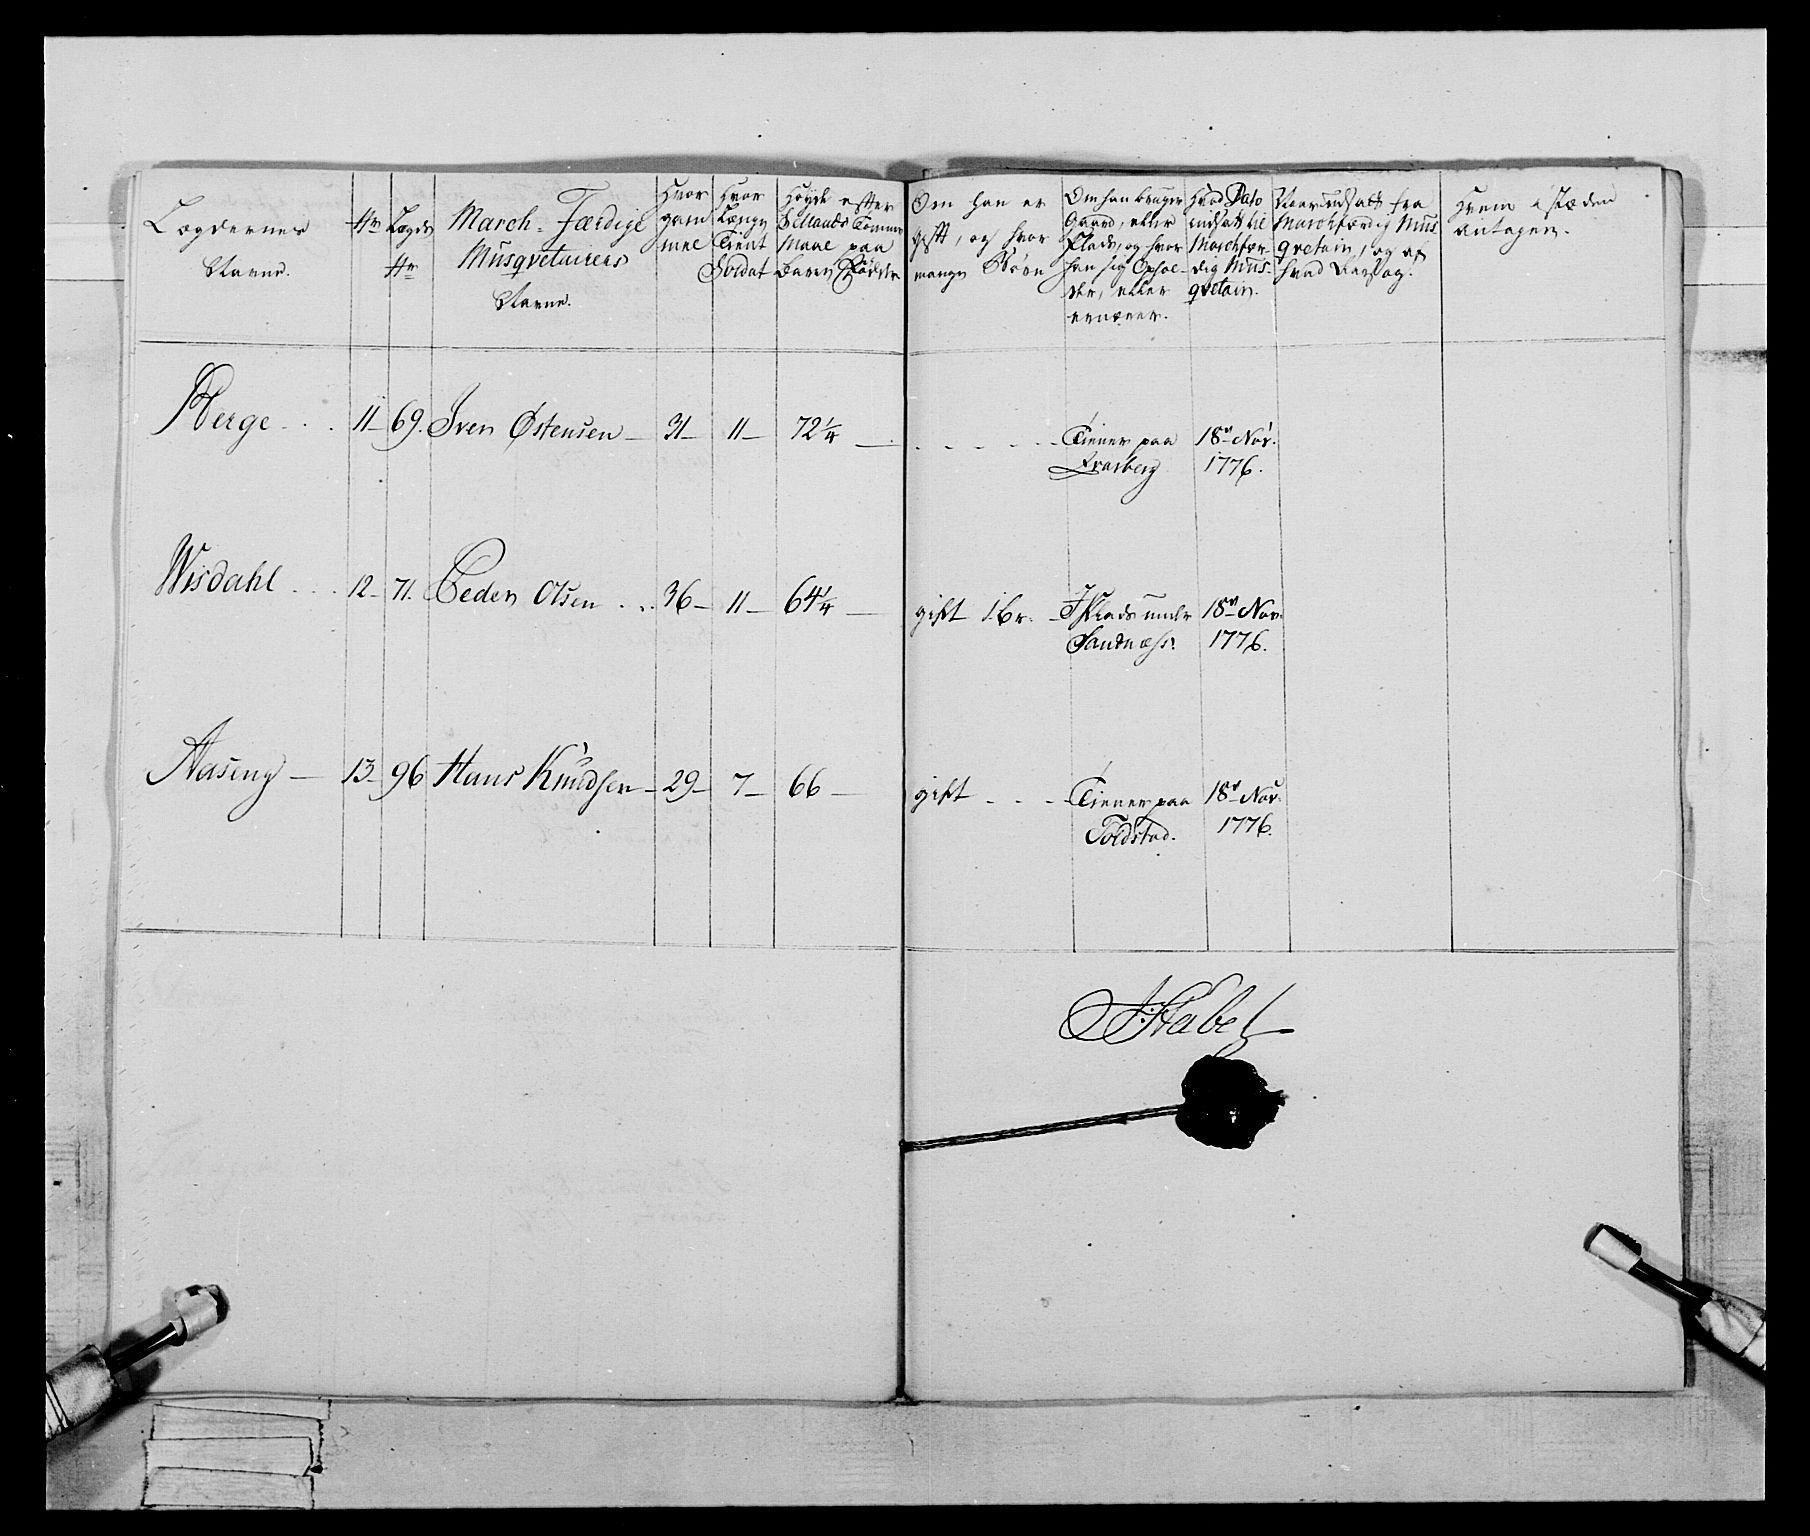 Lægdernes Navne.
No
Lægds No
March-Færdige
Musqvetairers
Navne.
Hvor
gam
mel
Hvor
Længe
Tient
Soldat
Høyde efter
Sellands Tomme
Maal paa
Baren Fødder
Om han er
gift, og hvor
mange Børn
Om han bruger
Gaard, eller
Plads, og hvor
han sig Ophol-
der, eller
ernærer.
Hvad Dato
indsatt til
Marchfær-
dig Mus-
qvetair.
Naar udsatt fra
Marchfærdig Mus
qvetair, og af
hvad Aarsag.
Hvem i stæden
antagen.
Berge . . . 11 69. Iver Østensen 31 11 72 1/4 Tiener paa 18de Nov.
1776.
Wisdahl . . . 12 71. Peder Olsen . . 36 11 64 1/4 gift 1 Br. Plads under 18de Nov.
Sandnæss. 1776.
Aaseng 13 96 Hans Knudsen 29 7 66 gift . . . Tiener paa 18de Nov.
Toldstad. 1776.
Stabel